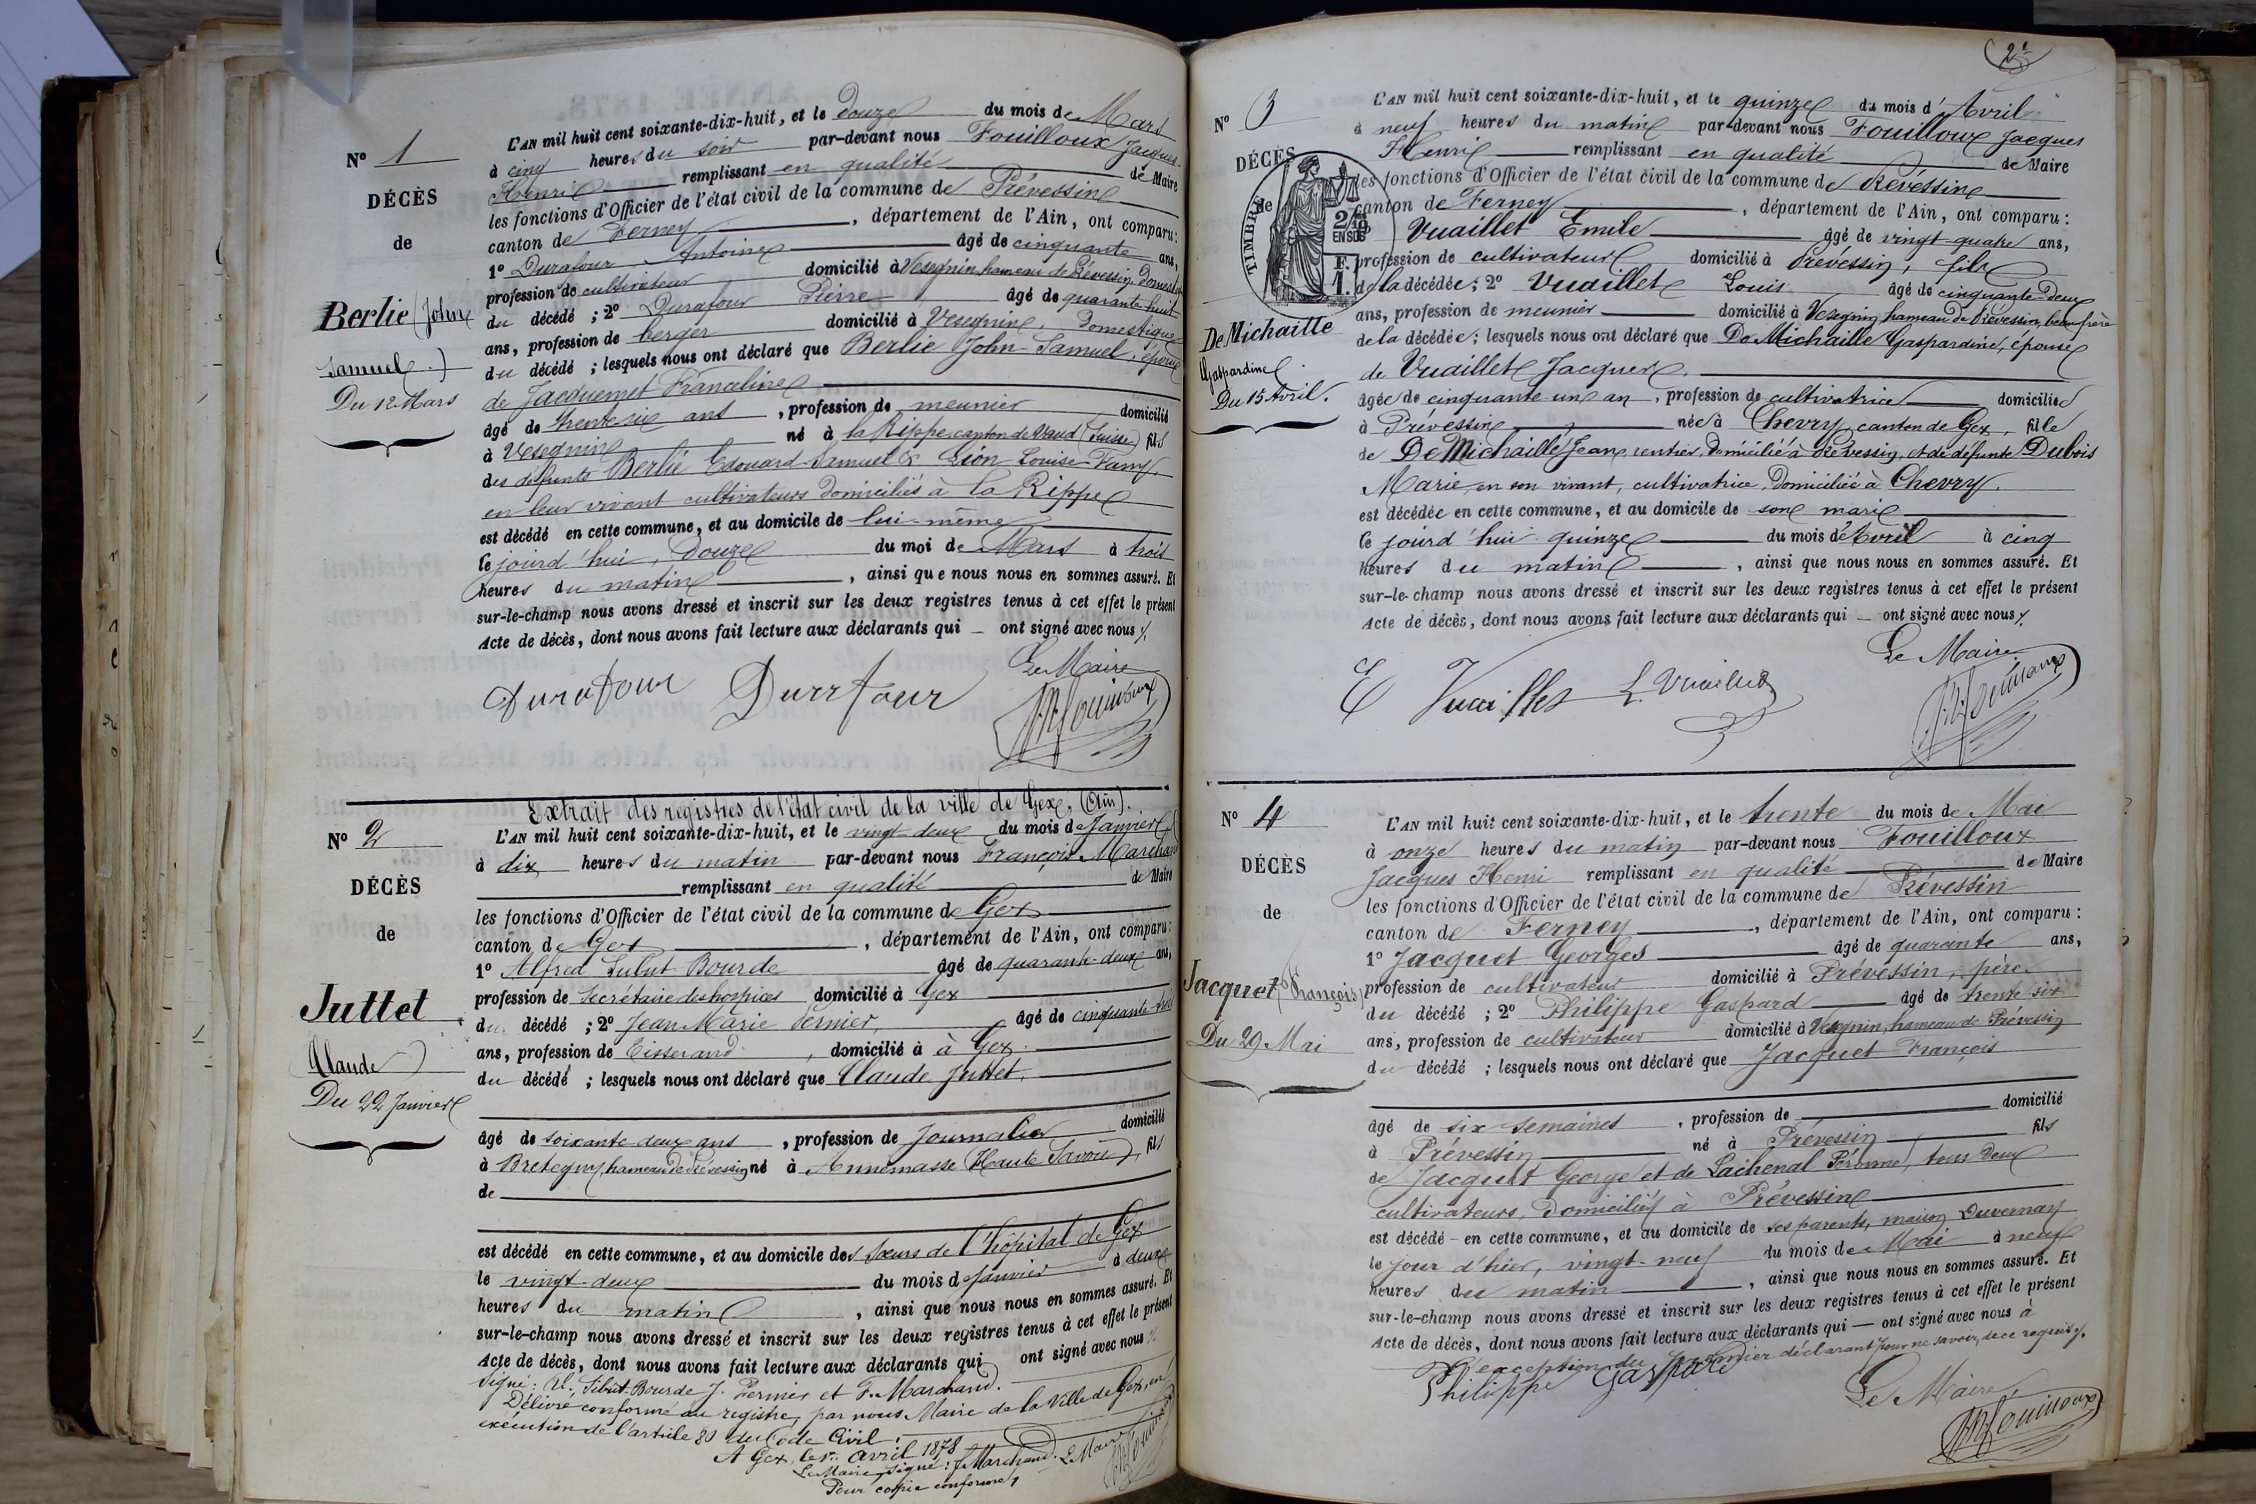 Nº 1
DÉCÈS
de
Berlie (John
Samuel.)
Du 12 Mars
L'AN mil huit cent soixante-dix-huit, et le douze du mois de Mars
à cinq heures du soir par-devant nous Fouilloux Jacques-
Henri remplissant en qualité de Maire
les fonctions d'Officier de l'état civil de la commune de Prévessin
canton de Ferney, département de l'Ain, ont comparu:
1º Durafour Antoine âgé de cinquante ans,
profession de cultivateur domicilié à Vesegnin, hameau de Prévessin, Domestique
du décédé ; 2º Durafour Pierre âgé de quarante-huit
ans, profession de berger domicilié à Vesegnin, domestique
du décédé ; lesquels nous ont déclaré que Berlie John-Samuel, époux
de Jacquemet Franceline
âgé de trente six ans, profession de meunier domicilié
à Vesegnin né à la Rippe, canton de Vaud (Suisse) fils
des défunts Berlie Edouard-Samuel & Lion Louise Fany,
en leur vivant cultivateurs domiciliés à la Rippe
est décédé en cette commune, et au domicile de lui-même
le jourd'hui, Douze du moi de Mars à trois
heures du matin, ainsi que nous nous en sommes assuré. Et
sur-le-champ nous avons dressé et inscrit sur les deux registres tenus à cet effet le présent
Acte de décès, dont nous avons fait lecture aux déclarants qui — ont signé avec nous
Le Maire
Durafour Durrfour JHFouilloux
Nº 2
DÉCÈS
de
Juttet
(Claude)
Du 22 Janvier
Extrait des registres de l'état civil de la ville de Gex, (Ain).
L'AN mil huit cent soixante-dix-huit, et le vingt-deux du mois de Janvier
à dix heures du matin par-devant nous François Marchand
remplissant en qualité de Maire
les fonctions d'Officier de l'état civil de la commune de Gex
canton de Gex, département de l'Ain, ont comparu:
1º Alfred Bourde âgé de quarante-deux ans,
profession de Secrétaire des hospices domicilié à Gex
du décédé ; 2º Jean Marie Vernier, âgé de cinquante-trois
ans, profession de Tisserand, domicilié à à Gex.
du décédé ; lesquels nous ont déclaré que Claude Juttet,
âgé de soixante deux ans, profession de Journalier domicilié
à Bretegny, hameau de Prévessin né à Annemasse (Haute Savoie), fils
de
est décédé en cette commune, et au domicile des sœurs de l'hôpital de Gex
le vingt-deux du mois de Janvier à deux
heures du matin, ainsi que nous nous en sommes assuré. Et
sur-le-champ nous avons dressé et inscrit sur les deux registres tenus à cet effet le présent
Acte de décès, dont nous avons fait lecture aux déclarants qui ont signé avec nous
Signé: Bourde J. Vernier et F. Marchand.
Délivré conforme au registre, par nous Maire de la Ville de Gex, en
exécution de l'article 80 du Code Civil.
A Gex, le 1er avril 1878
Le Maire, signé: F. Marchand. Le Maire
Pour copie conforme, JHFouilloux
2e
Nº 3
DÉCÈS
de
TIMBRE
2/10
EN SUS
F.
1.
De Michaille
Gaspardine
Du 15 Avril.
L'AN mil huit cent soixante-dix-huit, et le quinze du mois d'Avril
à neuf heures du matin par-devant nous Fouilloux Jacques
Henri remplissant en qualité de Maire
les fonctions d'Officier de l'état civil de la commune de Prévessin
canton de Ferney, département de l'Ain, ont comparu:
Vuaillet Emile âgé de vingt-quatre ans,
profession de cultivateur domicilié à Prévessin, fils
de la décédée ; 2º Vuaillet Louis âgé de cinquante-deux
ans, profession de meunier domicilié à Vesegnin, hameau de Prévessin, beau-frère
de la décédée ; lesquels nous ont déclaré que De Michaille Gaspardine, épouse
de Vuaillet Jacques.
âgée de cinquante-un an, profession de cultivatrice domiciliée
à Prévessin née à Chevry, canton de Gex, fille
de De Michaille Jean, rentier, domicilié à Prévessin, et de défunte Dubois
Marie, en son vivant, cultivatrice, Domiciliée à Chevry.
est décédée en cette commune, et au domicile de son mari
le jourd'hui quinze du mois d'Avril à cinq
heures du matin, ainsi que nous nous en sommes assuré. Et
sur-le-champ nous avons dressé et inscrit sur les deux registres tenus à cet effet le présent
Acte de décès, dont nous avons fait lecture aux déclarants qui — ont signé avec nous
Le Maire
E Vuaillet L. Vuaillet JHFouilloux
Nº 4
DÉCÈS
de
Jacquet (François)
Du 29 Mai
L'AN mil huit cent soixante-dix-huit, et le trente du mois de Mai
à onze heures du matin par-devant nous Fouilloux
Jacques Henri remplissant en qualité de Maire
les fonctions d'Officier de l'état civil de la commune de Prévessin
canton de Ferney, département de l'Ain, ont comparu:
1º Jacquet Georges âgé de quarante ans,
profession de cultivateur domicilié à Prévessin, père
du décédé ; 2º Philippe Gaspard âgé de trente-six
ans, profession de cultivateur domicilié à Vesegnin, hameau de Prévessin
du décédé ; lesquels nous ont déclaré que Jacquet François
âgé de six semaines, profession de domicilié
à Prévessin né à Prévessin fils
de Jacquet George et de Lachenal Péronne, tous deux
cultivateurs, Domiciliés à Prévessin
est décédé - en cette commune, et au domicile de ses parents, maison Duvernay
le jour d'hier, vingt-neuf du mois de Mai à neuf
heures du matin, ainsi que nous nous en sommes assuré. Et
sur-le-champ nous avons dressé et inscrit sur les deux registres tenus à cet effet le présent
Acte de décès, dont nous avons fait lecture aux déclarants qui — ont signé avec nous à
l'exception du premier déclarant pour ne savoir, de ce requis.
Philippe Gaspard
Le Maire,
JHFouilloux